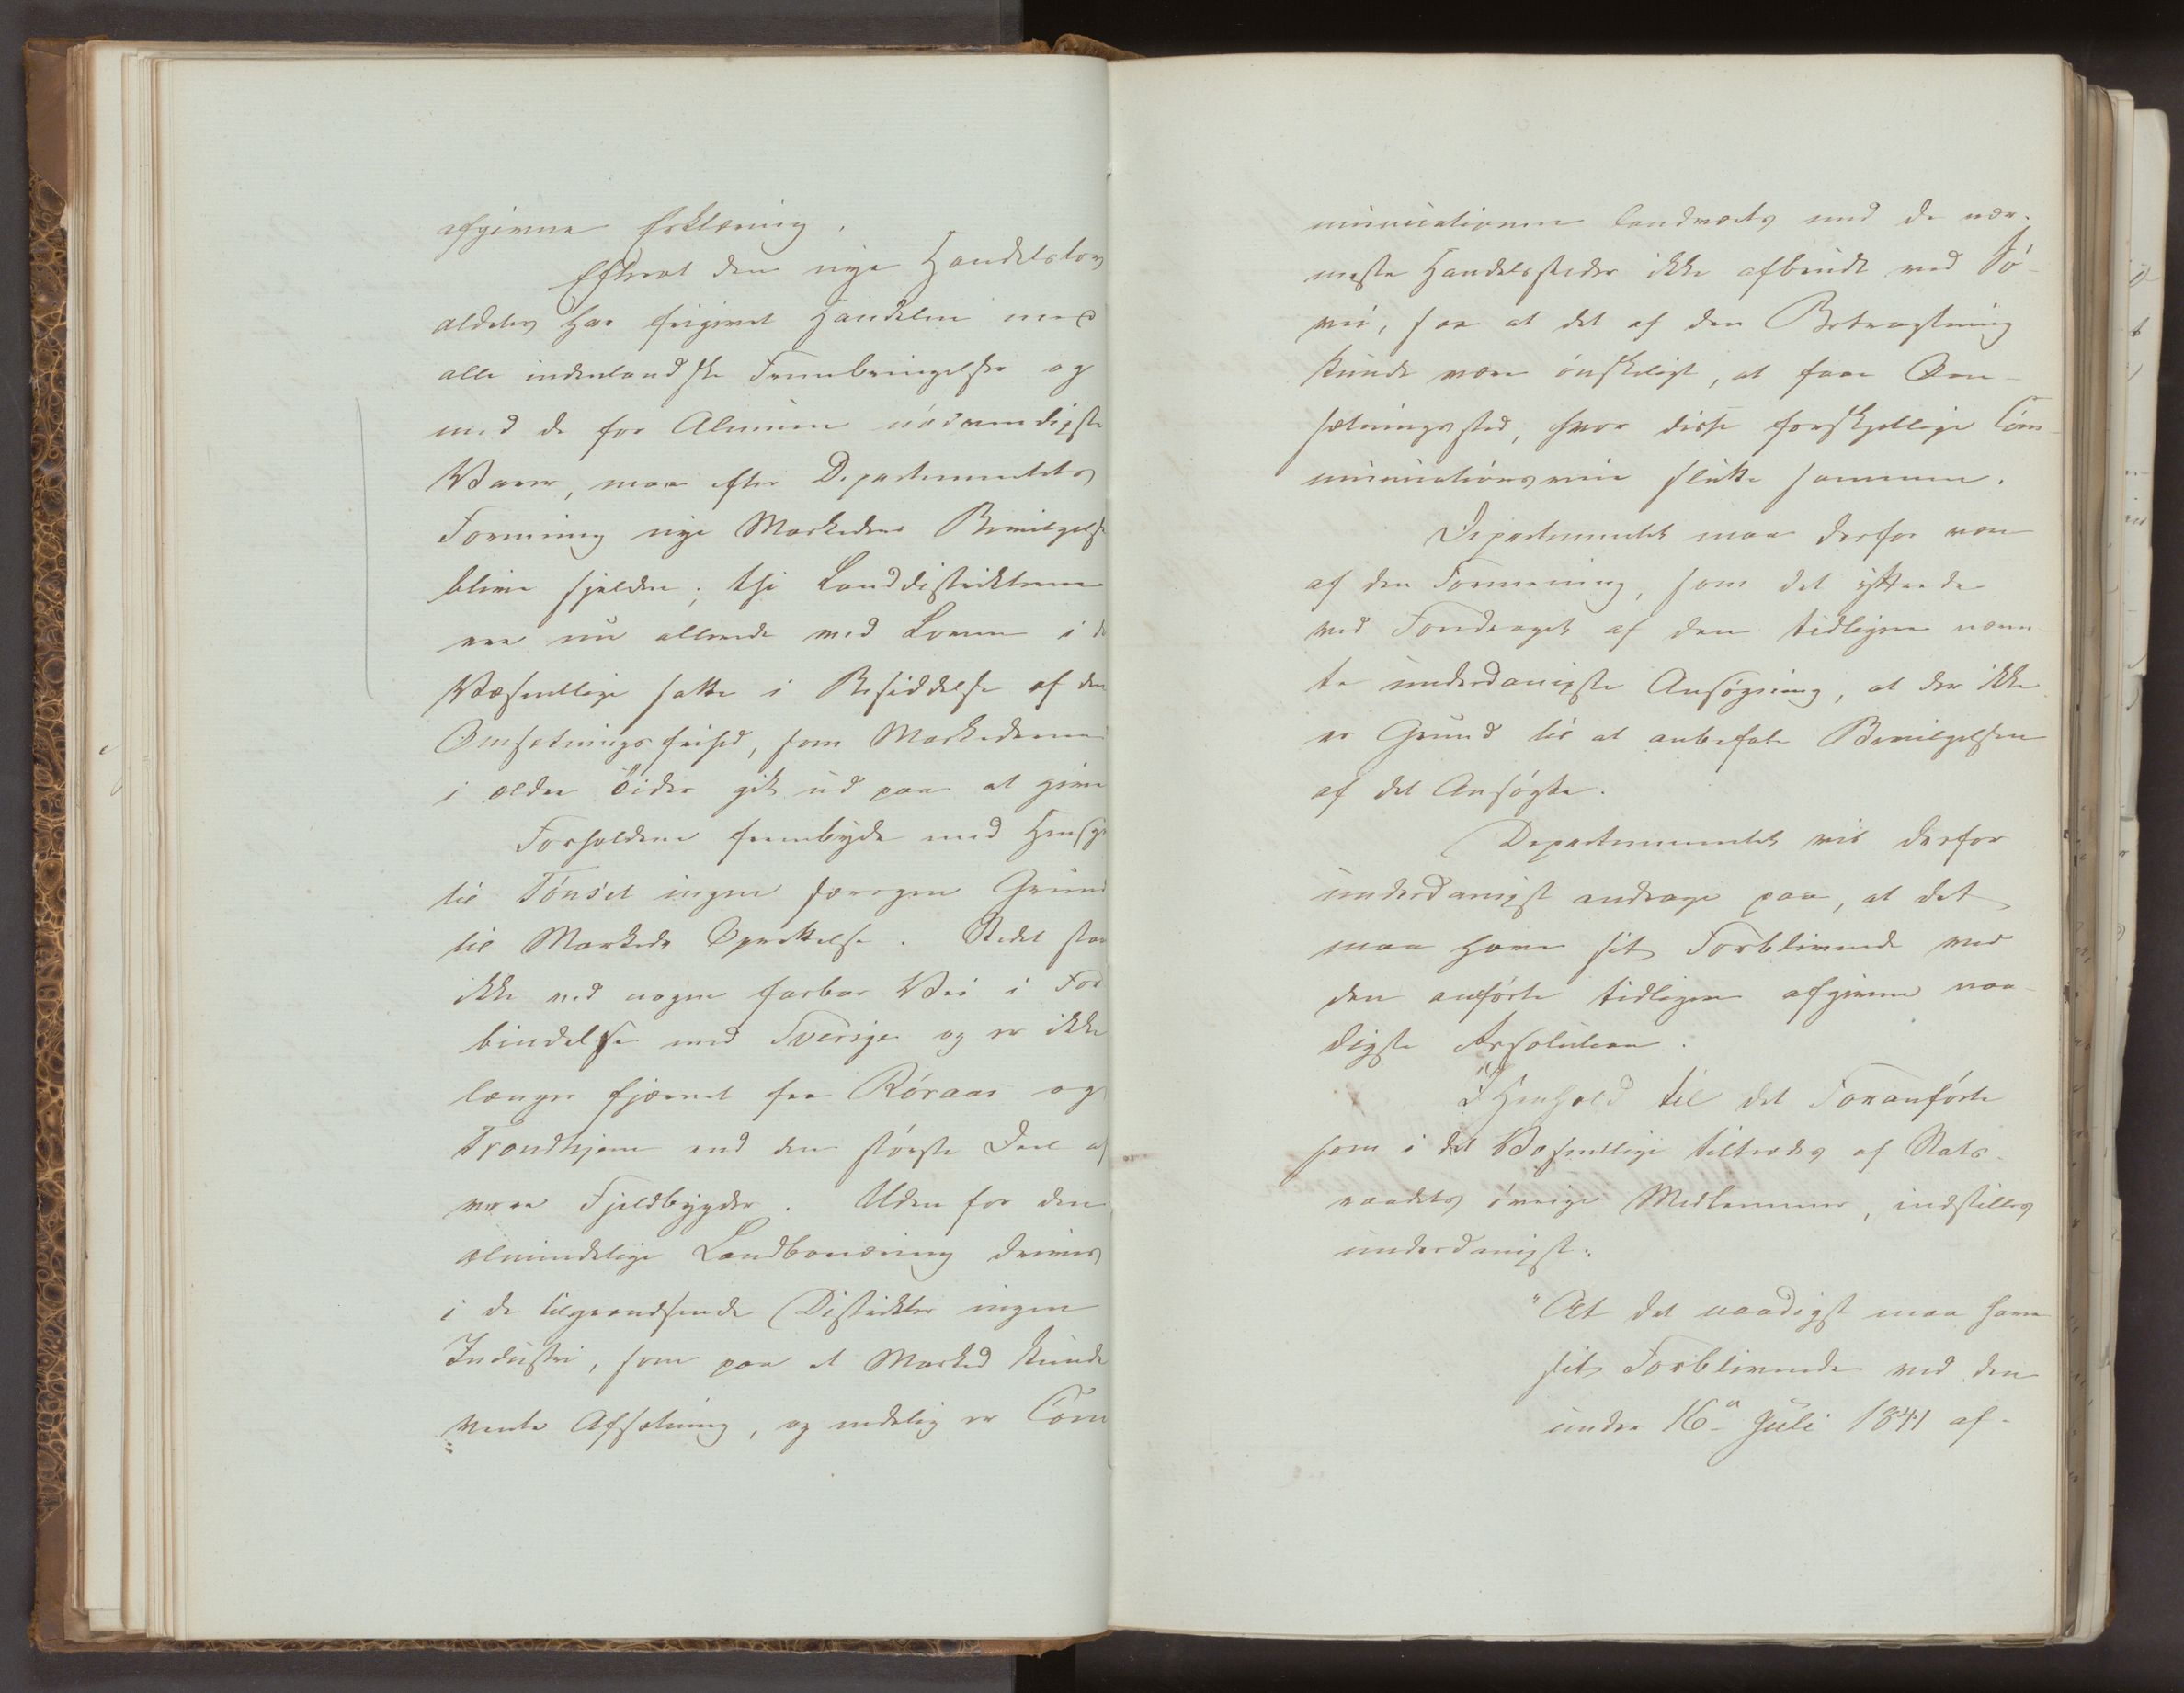 afgivne Erklæring.
Efterat den nye Handelslov
aldeles har frigivet Handelen med
alle indenlandske Frembringelser og
med de for Almuen nødvendigste
Varer, maa efter Departementets
Formening nye Markeders Bevilgelse
blive sjelden; thi Landdistrikterne
ere nu allerede ved Loven i d
Væsentlige satte i Besiddelse af den
Omsætningsfrihed, som Markederne
i ældre Tider gik ud paa at give
Forholdene frembyde med Hensyn
til Tønset ingen særegen Grund
til Markeds Oprettelse. Stedet staar
ikke ved nogen farbar Vei i For
bindelse med Sverige og er ikke
længer fjærnet fra Røraas og
Trondhjem end den største Deel af
vore Fjeldbygder. Uden for den
almindelige Landbonæring drives
i de tilgrændsende Distrikter ingen
Industri, som paa et Marked kunde
vente Afsætning, og endelig er Com
municationen landværts med de nær-
meste Handelssteder ikke afbrudt ved Sø-
vei, saa at det af den Betragtning
kunde være ønskeligt, at faae Om-
sætningssted, hvor disse forskjellige Com
municationsveie støtte sammen.
Departementet maa derfor være
af den Formening, som det yttrede
ved Foredraget af den tidligere nævn
te underdanigste Ansøgning, at der ikke
er Grund til at anbefale Bevilgelsen
af det Ansøgte.
Departementet vil derfor
underdanigst andrage paa, at det
maa have sit Forblivende ved
den anførte tidligere afgivne naa-
digste Resolution.
I Henhold til det Foranførte
som i det Væsentlige tiltrædes af Stats-
raadets øvrige Medlemmer, indstilles
underdanigst:
"At det naadigst maa have
sit Forblivende ved den
under 16de Juli 1841 af-